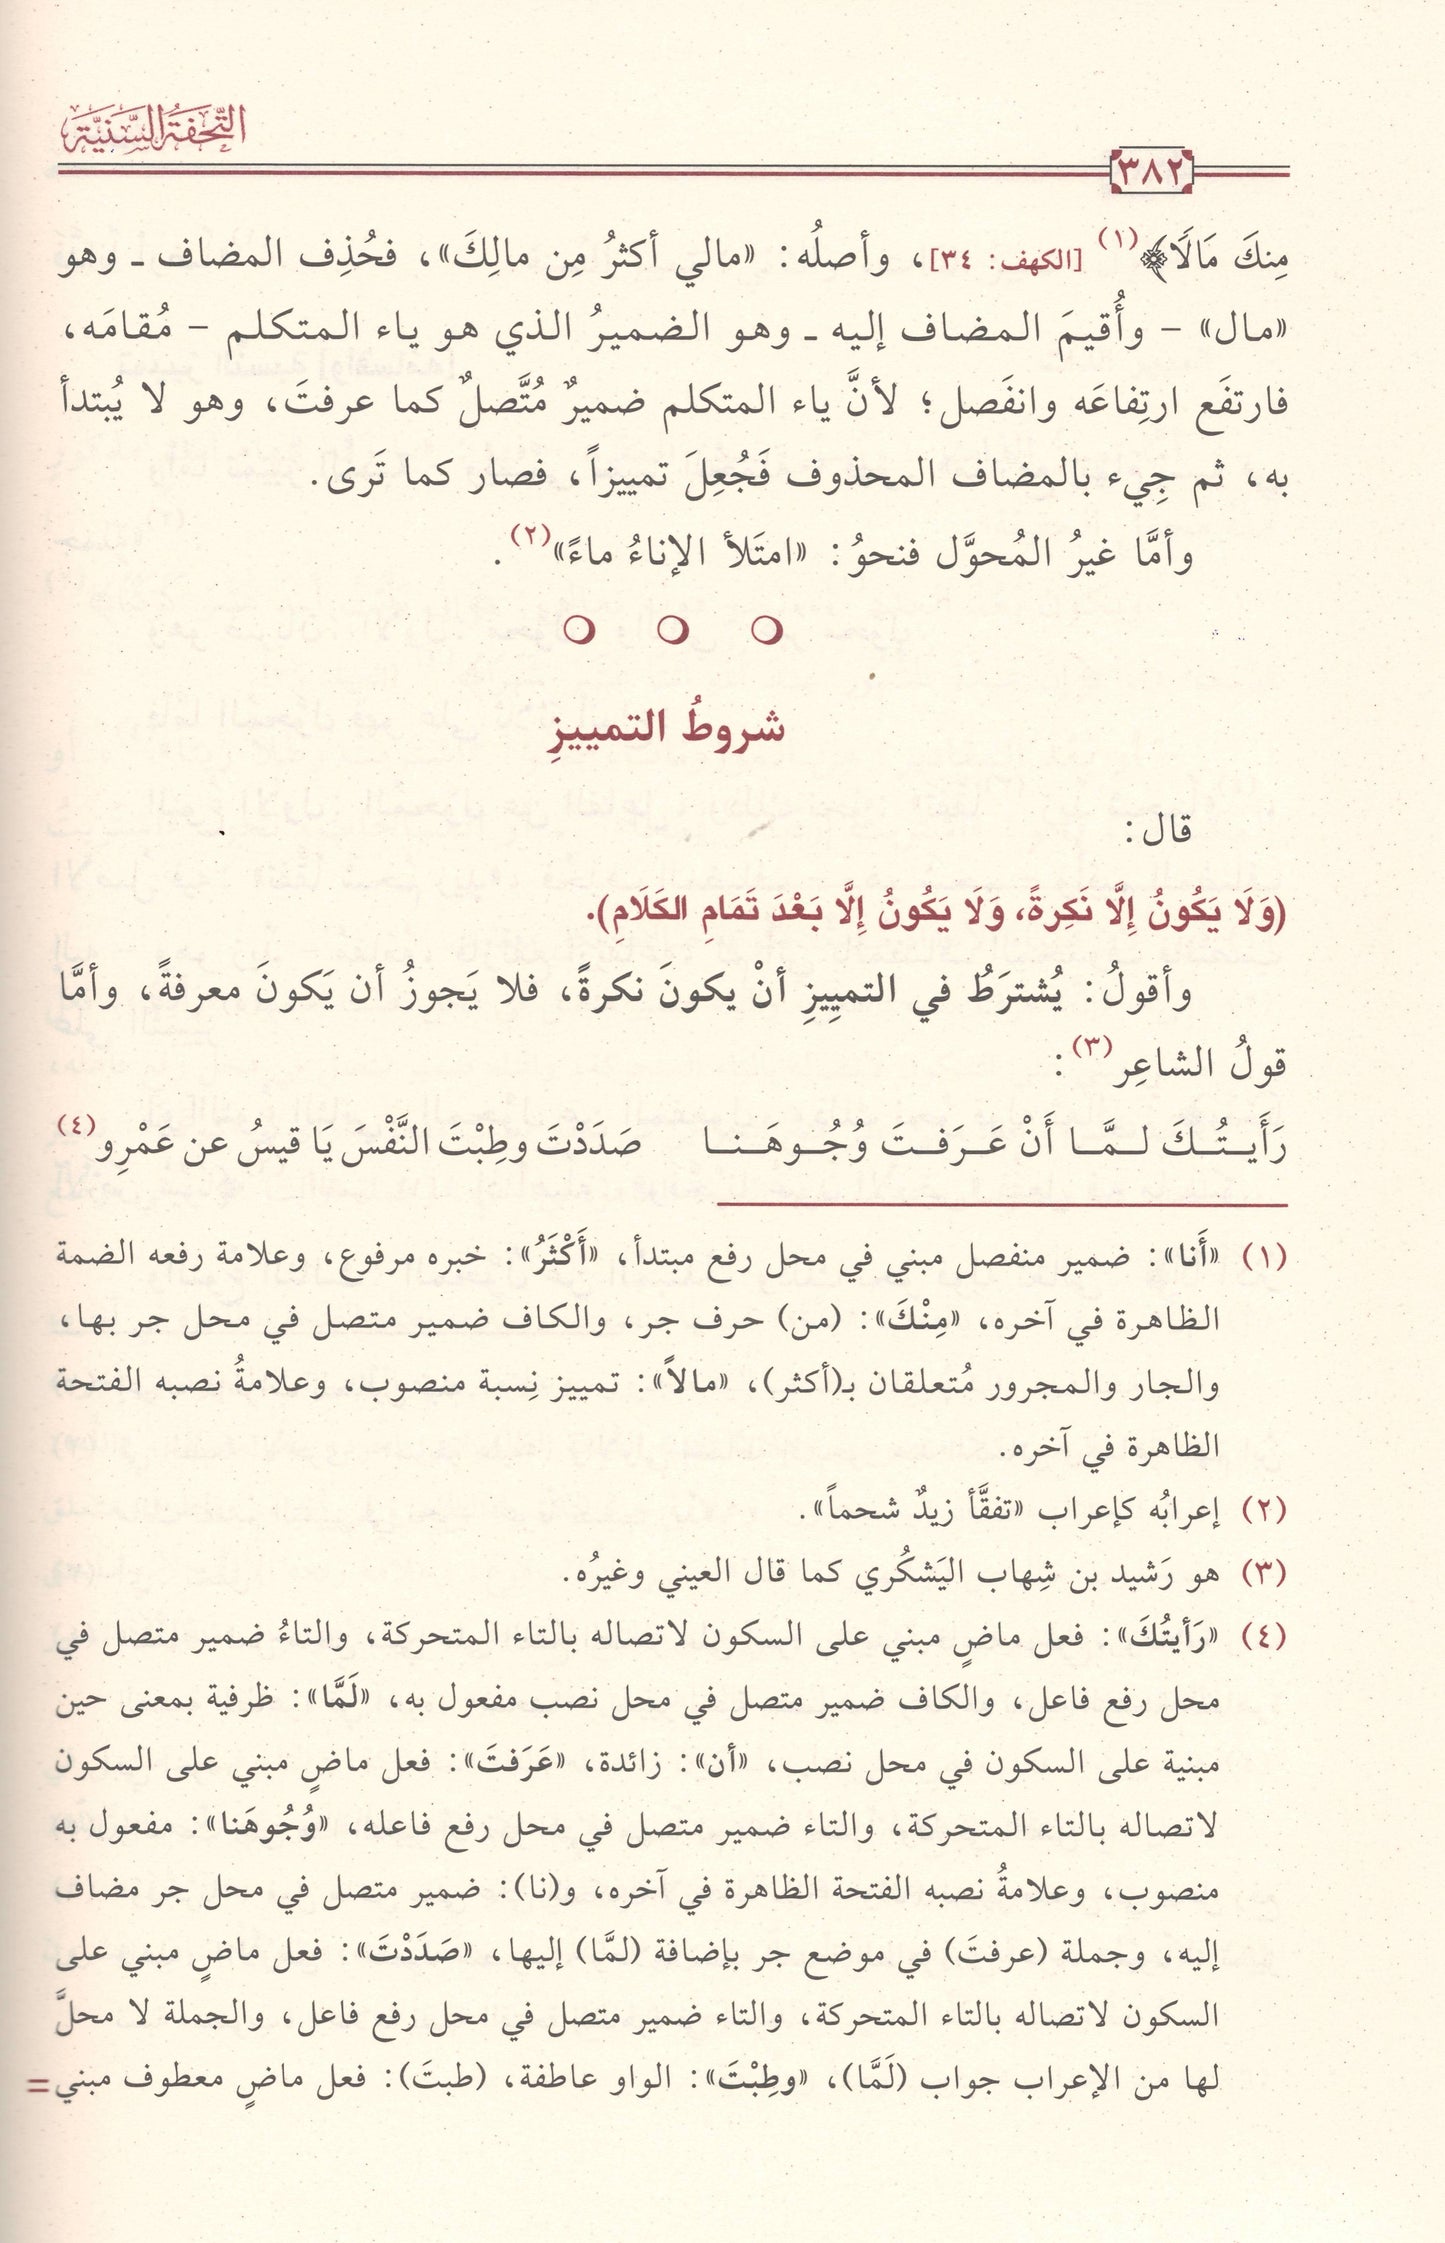 التحفة السنية
٣٨٢
مِنكَ مَالًا﴾(١) [الكهف: ٣٤]، وأصلُه: «مالي أكثرُ مِن مالِكَ»، فحُذِف المضاف ـ وهو
«مال» - وأُقيمَ المضاف إليه ـ وهو الضميرُ الذي هو ياء المتكلم - مُقامَه،
فارتفَع ارتِفاعَه وانفَصل؛ لأنَّ ياء المتكلم ضميرٌ مُتَّصلٌ كما عرفتَ، وهو لا يُبتدأ
به، ثم جِيء بالمضاف المحذوف فَجُعِلَ تمييزاً، فصار كما تَرى.
وأمَّا غيرُ المُحوَّل فنحوُ: «امتَلأ الإناءُ ماءً»(٢).
شروطُ التمييزِ
قال:
(وَلَا يَكُونُ إِلَّا نَكِرةً، وَلَا يَكُونُ إِلَّا بَعْدَ تَمَامِ الكَلَامِ).
وأقولُ: يُشترَطُ في التمييِزِ أنْ يكونَ نكرةً، فلا يَجوزُ أن يَكونَ معرفةً، وأمَّا
قولُ الشاعِر(٣):
رَأَيـتُـكَ لـمَّـا أَنْ عَـرَفـتَ وُجُـوهَـنـا صَدَدْتَ وطِبْتَ النَّفْسَ يَا قيسُ عن عَمْرِو(٤)
(١) «أَنا»: ضمير منفصل مبني في محل رفع مبتدأ، «أَكْثَرُ»: خبره مرفوع، وعلامة رفعه الضمة
الظاهرة في آخره، «مِنْكَ»: (من) حرف جر، والكاف ضمير متصل في محل جر بها،
والجار والمجرور مُتعلقان بـ(أكثر)، «مالاً»: تمييز نِسبة منصوب، وعلامةُ نصبه الفتحة
الظاهرة في آخره.
(٢) إعرابُه كإعراب «تفقَّأ زيدٌ شحماً».
(٣) هو رَشيد بن شِهاب اليَشكُري كما قال العيني وغيرُه.
(٤) «رَأيتُكَ»: فعل ماضٍ مبني على السكون لاتصاله بالتاء المتحركة، والتاءُ ضمير متصل في
محل رفع فاعل، والكاف ضمير متصل في محل نصب مفعول به، «لَمَّا»: ظرفية بمعنى حين
مبنية على السكون في محل نصب، «أن»: زائدة، «عَرَفتَ»: فعل ماضٍ مبني على السكون
لاتصاله بالتاء المتحركة، والتاء ضمير متصل في محل رفع فاعله، «وُجُوهَنا»: مفعول به
منصوب، وعلامةُ نصبه الفتحة الظاهرة في آخره، و(نا): ضمير متصل في محل جر مضاف
إليه، وجملة (عرفتَ) في موضع جر بإضافة (لمَّا) إليها، «صَدَدْتَ»: فعل ماضٍ مبني على
السكون لاتصاله بالتاء المتحركة، والتاء ضمير متصل في محل رفع فاعل، والجملة لا محلَّ
لها من الإعراب جواب (لَمَّا)، «وطِبْتَ»: الواو عاطفة، (طبتَ): فعل ماضٍ معطوف مبني =